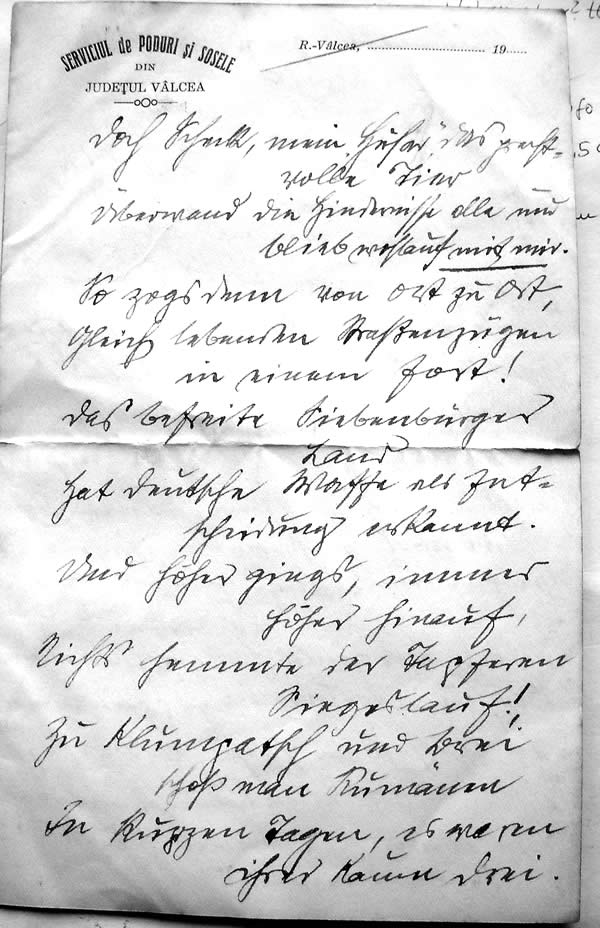 SERVICIUL de PODURI și ȘOSELE
DIN
JUDEȚUL VÂLCEA
R.-Vâlcea, .................................. 19......
Doch Scheck, mein Husar, das pracht-
volle Tier
Überwand die Hindernisse alle und
blieb wohlauf mit mir.
So zogs denn von Ort zu Ort,
Gleich lebenden Straßenzügen
in einem fort!
Das befreite Siebenbürger
Land
Hat deutsche Waffe als Ent-
scheidung erkannt.
Und höher gings, immer
höher hinauf,
Nichts hemmte der Tapferen
Siegeslauf!
Zu Klumpatsch und Brei
schoß man Rumänen
In kurzen Tagen, es waren
ihrer kaum drei.